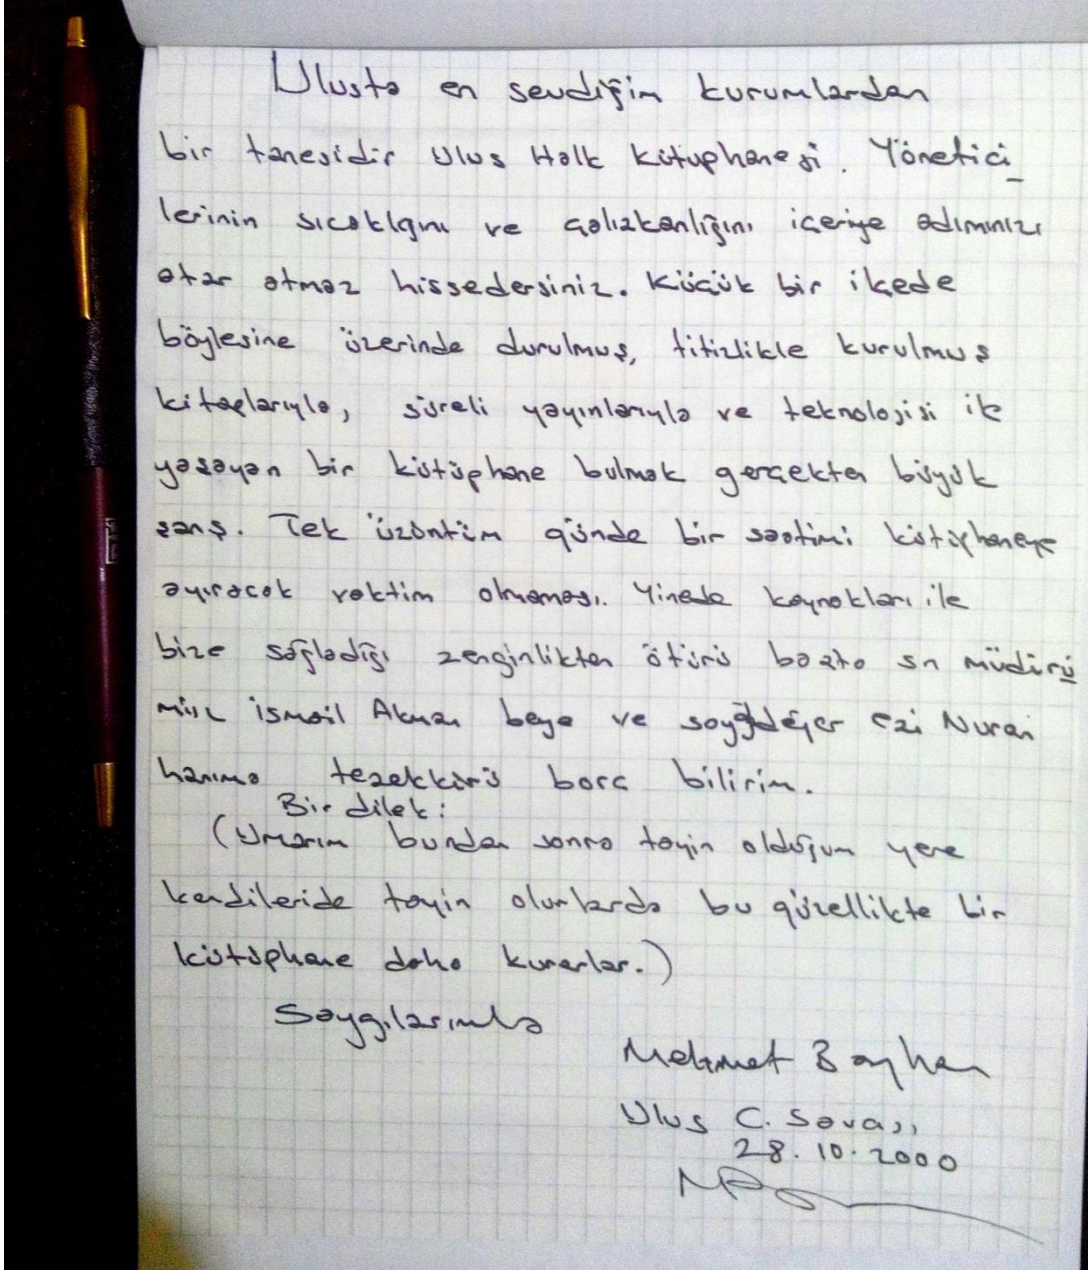 Ulusta en sevdiğim kurumlardan
bir tanesidir Ulus Halk Kütüphanesi. Yönetici_
lerinin sıcaklğını ve çalışkanlığını içeriye adımınızı
atar atmaz hissedersiniz. Küçük bir ilçede
böylesine üzerinde durulmuş, titizlikle kurulmuş
kitaplarıyla, süreli yayınlarıyla ve teknolojisi ile
yaşayan bir kütüphane bulmak gerçekten büyük
şanş. Tek üzüntüm günde bir saatimi kütüphaneye
ayıracak vaktim olmaması. Yinede kaynakları ile
bize sağladığı zenginlikten ötürü başta sn müdürü
müz İsmail Beye ve saygıdeğer eşi Nuran
hanıma teşekkürü borç bilirim.
Bir dilek:
(Umarım bundan sonra tayin olduğum yere
kendileride tayin olurlarda bu güzellikte bir
kütüphane daha kurarlar.)
Saygılarımla
Mehmet Bayhan
Ulus C. Savcısı
28.10.2000